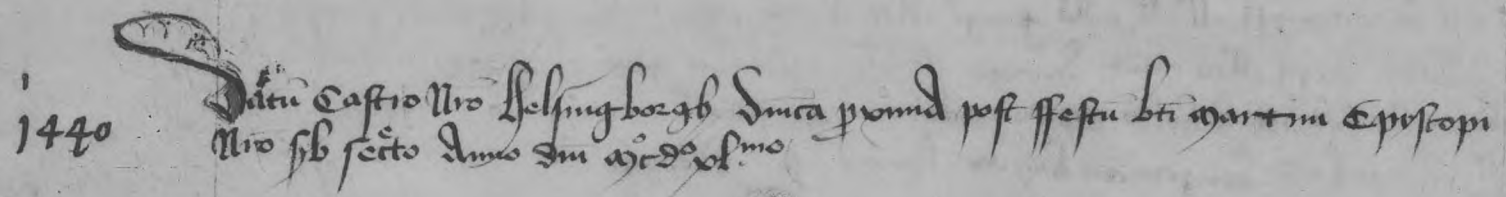 1440
Datū Castro Nr̄o Helsingborgh Dn̄ica proxima post ffestū bt̄i Martini Episcopi
Nr̄o sb secͬto Anno dn̄i mͦcdͦ xlmo